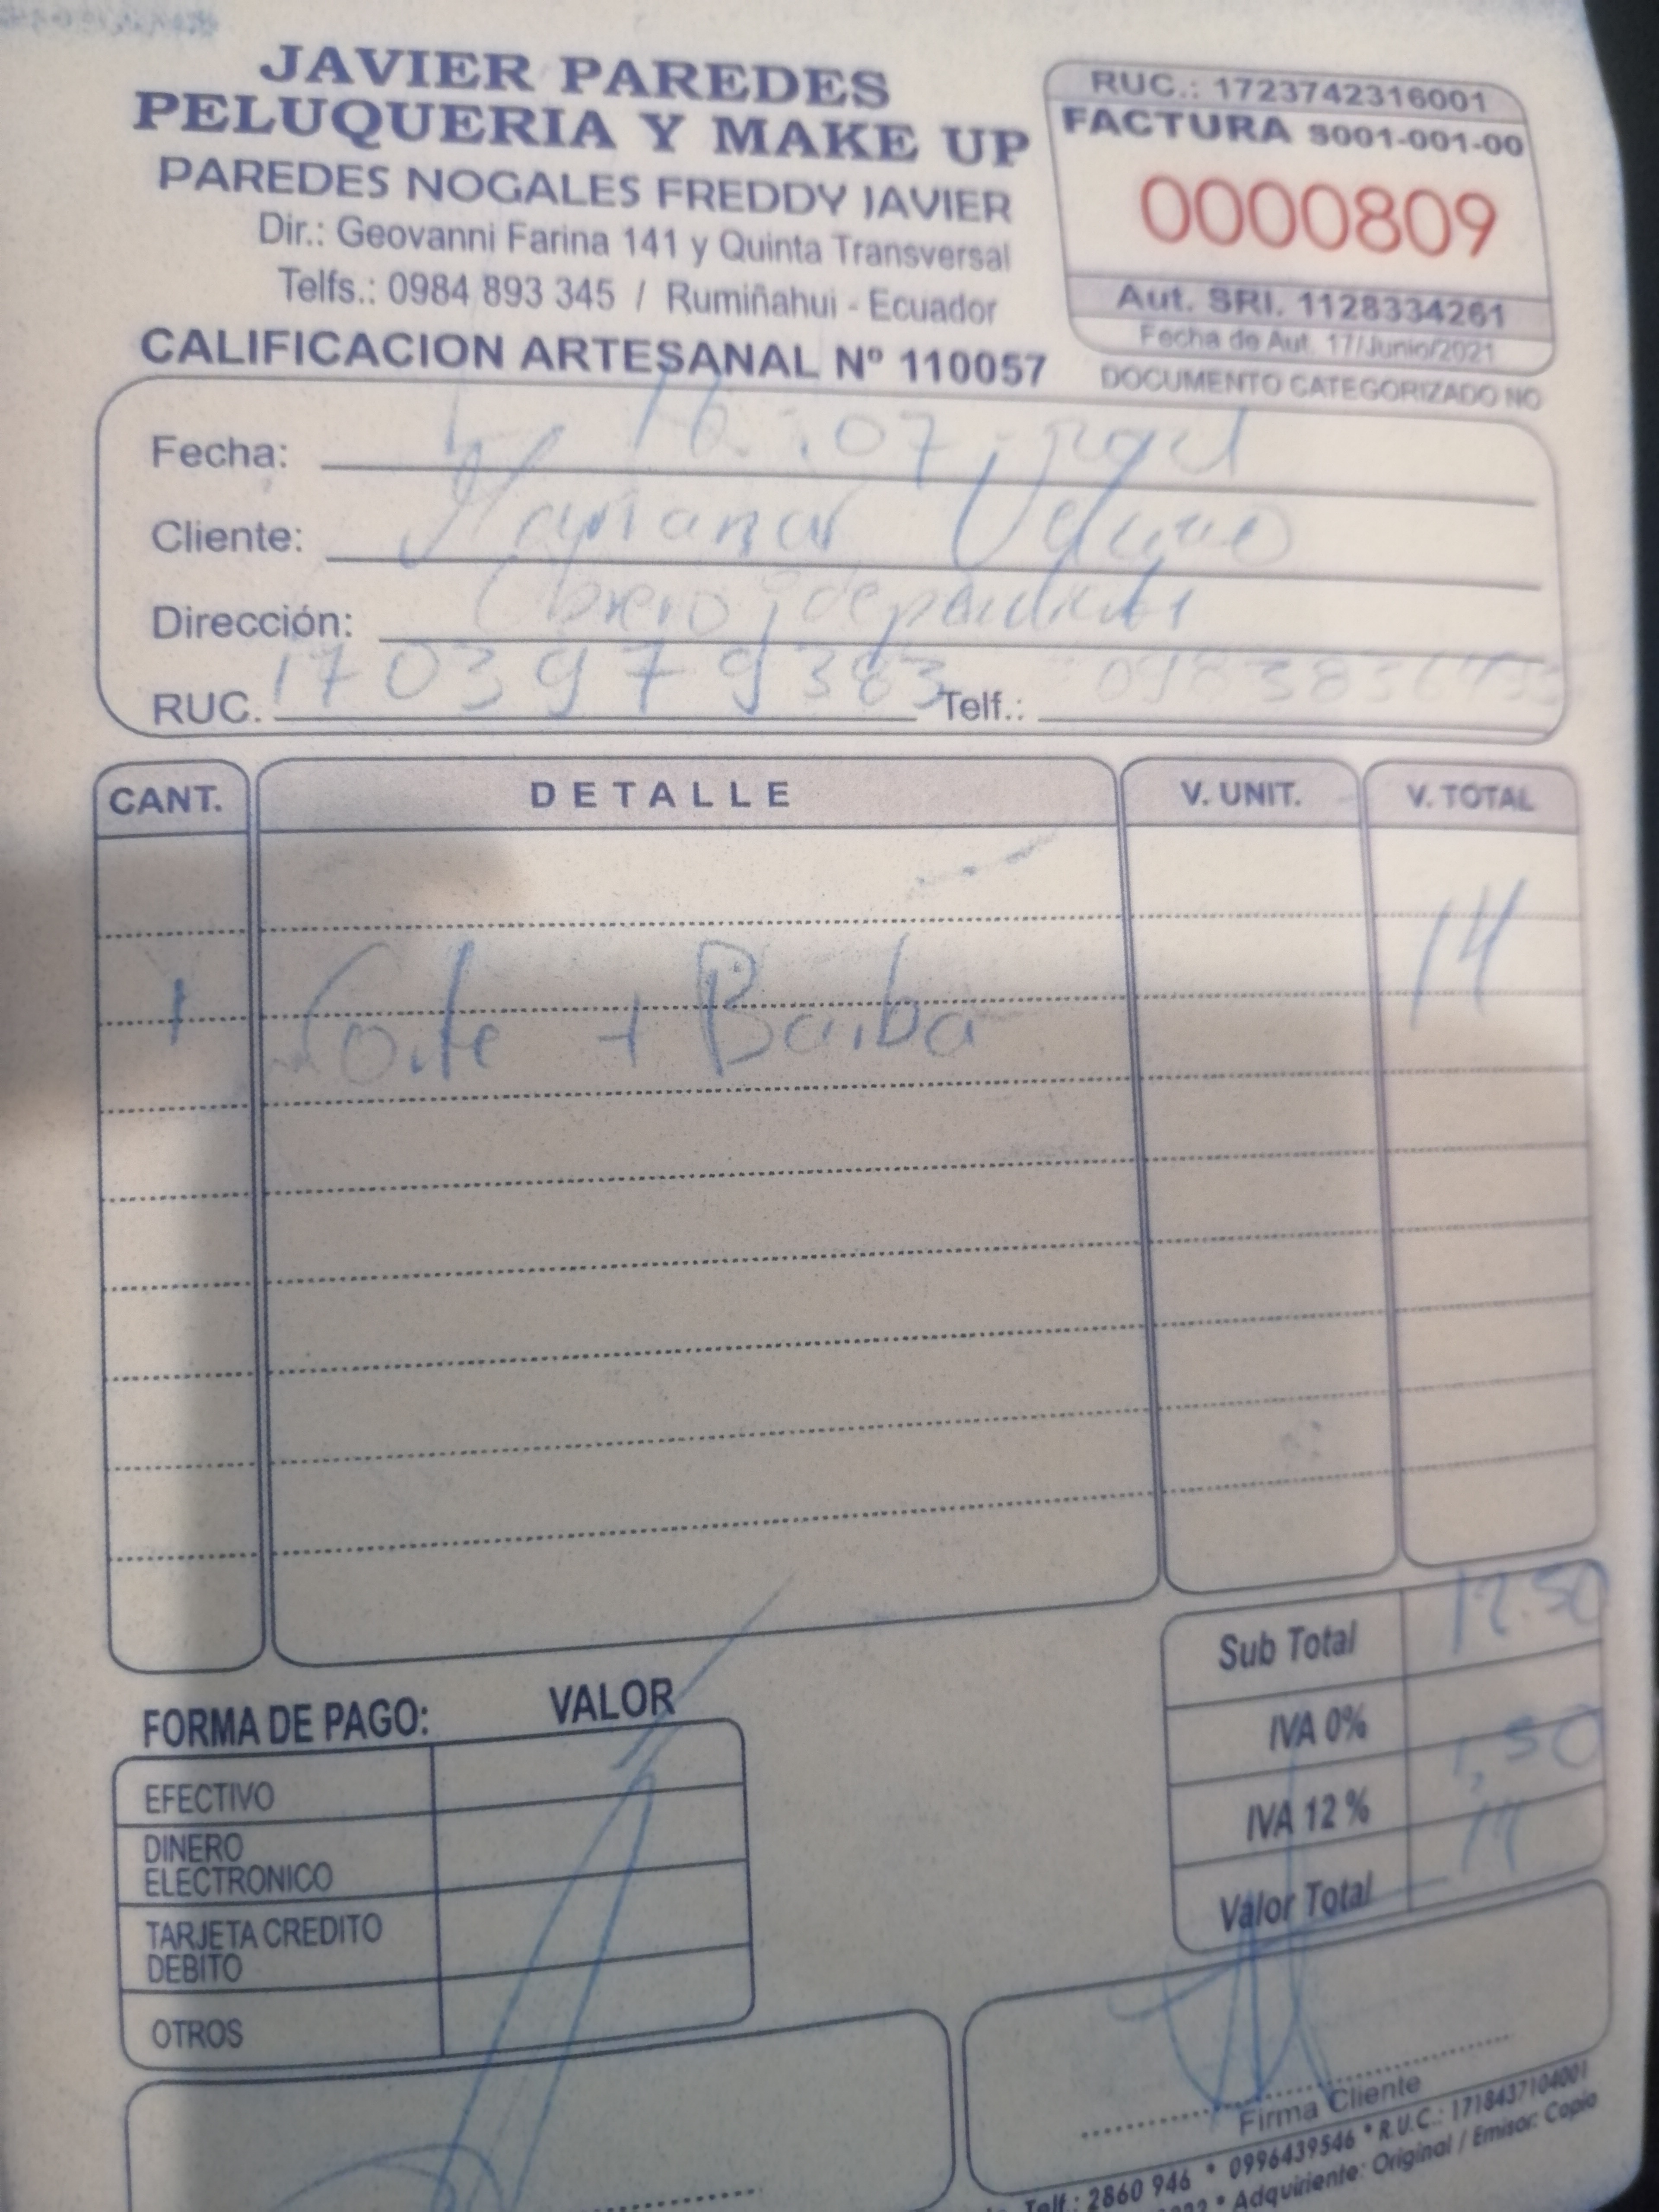 JAVIER PAREDES
PELUQUERIA Y MAKE UP
PAREDES NOGALES FREDDY JAVIER
Dir.: Geovanni Farina 141 y Quinta Transversal
Telfs.: 0984 893 345 / Rumiñahui - Ecuador
CALIFICACION ARTESANAL Nº 110057
RUC.: 1723742316001
FACTURA S001-001-00
0000809
Aut. SRI. 1128334261
Fecha de Aut. 17/Junio/2021
DOCUMENTO CATEGORIZADO NO
Fecha: 16 07
Cliente:
Dirección:
RUC. 1703979383 Telf.:
CANT. DETALLE V. UNIT. V. TOTAL
1 Corte + Barba 14
Sub Total 12.50
IVA 0%
IVA 12% 1,50
Valor Total 14
FORMA DE PAGO: VALOR
EFECTIVO
DINERO
ELECTRONICO
TARJETA CREDITO
DEBITO
OTROS
Firma Cliente
Telf.: 2860 946 * 0996439546 * R.U.C.: 1718437104001
* Adquiriente: Original / Emisor: Copia